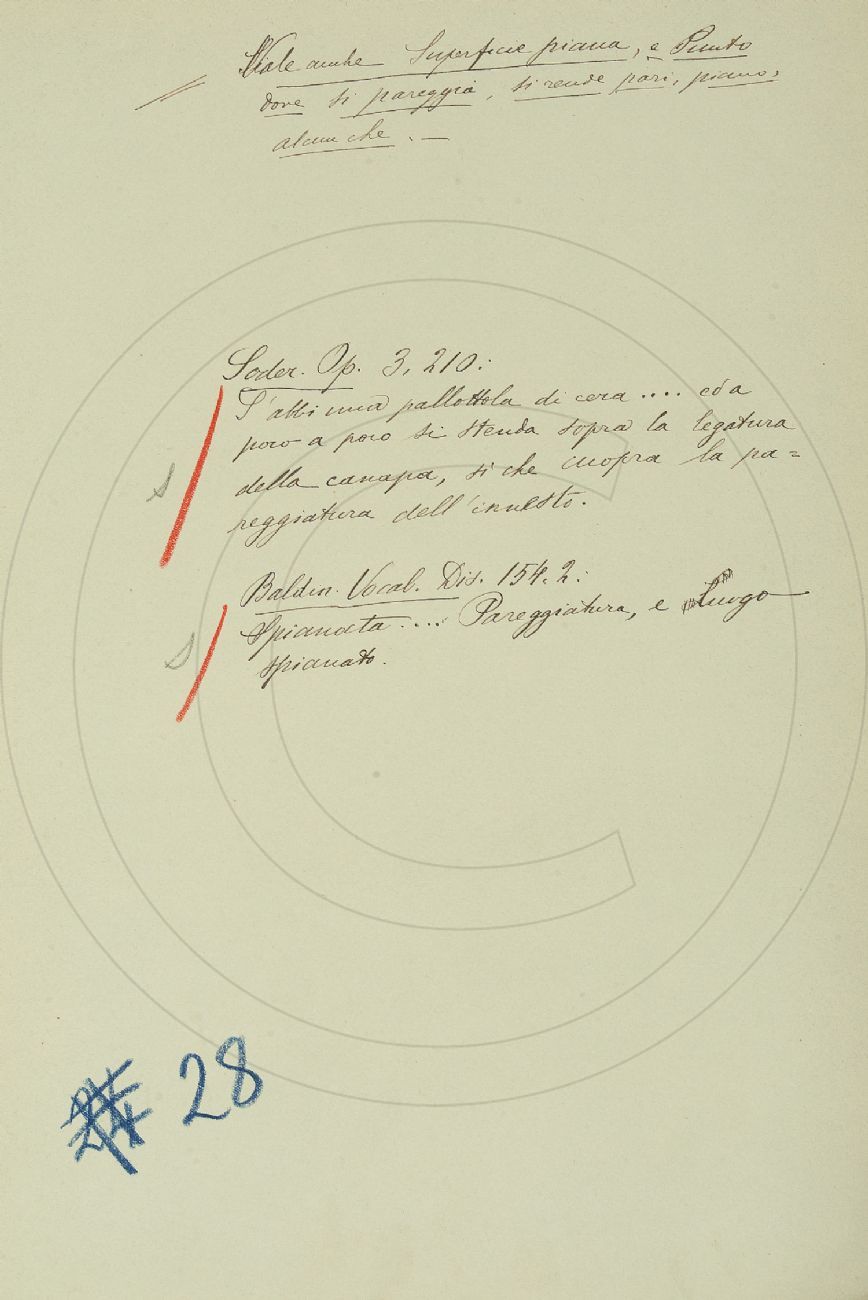 Vale anche Superficie piana, e Punto
dove si pareggia, si rende pari, piano,
alcun che. —
Soder. Op. 3, 210:
S'abbi una pallottola di cera .... ed a
poco a poco si stenda sopra la legatura
della canapa, sì che cuopra la pa=
reggiatura dell'innesto.
Baldin. Vocab. Dis. 154. 2:
Spianata .... Pareggiatura, e Luogo
spianato.
S
S
28